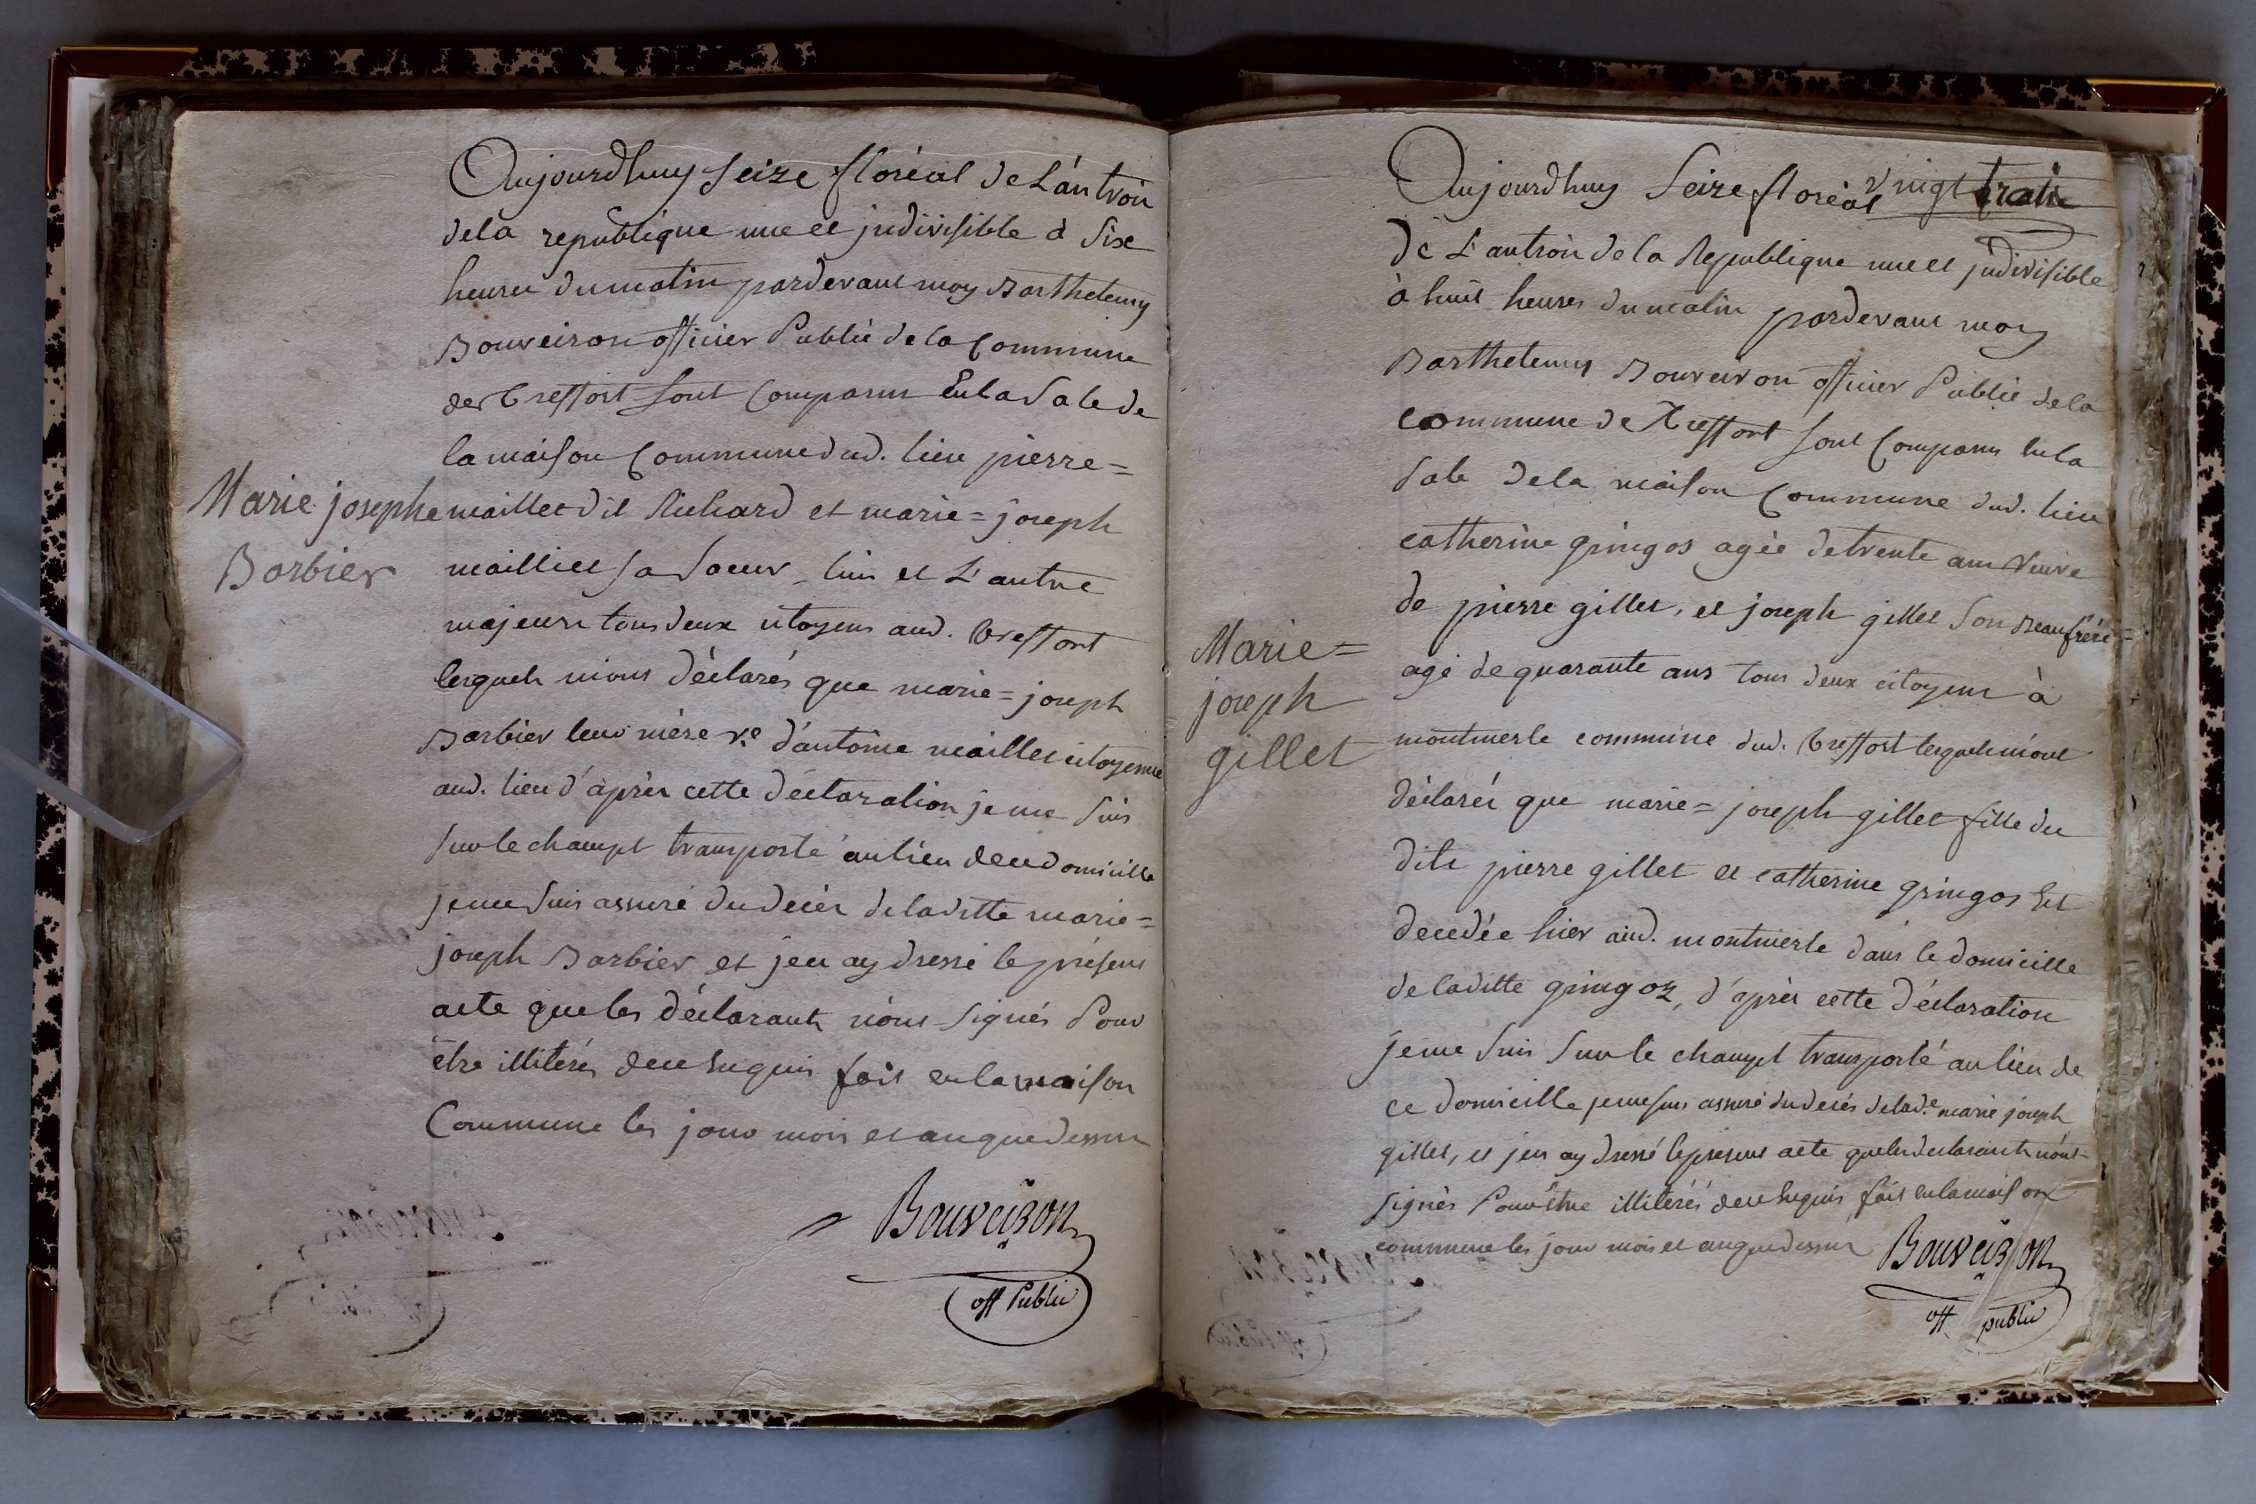 Aujourdhuy seize floréal de L'an trois
de la republique une et jndivisible à six
heures du matin pardevant moy Barthelemy
Bouveiron officier Public de la Commune
de Treffort sont Comparus En la Sale de
la maison Commune dud. lieu pierre =
maillet dit Richard et marie = joseph
Marie joseph
Barbier
mailliet sa soeur, l'un et L'autre
majeurs tous deux citoyens aud. Treffort
lesquels m'ont déclarés que marie = joseph
Barbier leur mère v.e d'antoine maillet citoyenne
aud. lieu d'après cette déclaration je me suis
sur le champt transporté au lieu de ce domicille
je me suis assuré du décès de laditte marie =
joseph Barbier et j'en ay dressé le présent
acte que les déclarants n'ont signés Pour
être illiterés de ce enquis fait en la maison
Commune les jour mois et an que dessus
Bouveiron
off Public
Aujourdhuy Seize floréal vingt trois
de L'an trois de la Republique une et jndivisible
à huit heures du matin pardevant moy
Barthelemy Bouveiron officier Public de la
commune de Treffort sont Comparus En la
Sale de la maison Commune dud. lieu
catherine gringos agée de trente ans veuve
de pierre gillet, et joseph gillet son Beaufrère =
agé de quarante ans tous deux citoyens à
Marie =
joseph
gillet
montmerle commune dud. Treffort lesquels m'ont
déclarés que marie = joseph gillet fille du
dits pierre gillet et catherine gringos Est
decedée hier aud. montmerle dans le domicille
de laditte gringoz, d'après cette déclaration
je me suis sur le champt transporté au lieu de
ce domicille je me suis assuré du decés de lad.e marie joseph
gillet, et j'en ay dressé le présent acte que les declarants n'ont =
signés Pour être illiterés de ce enquis fait en la maison
commune les jour mois et an que dessus
Bouveiron
off public